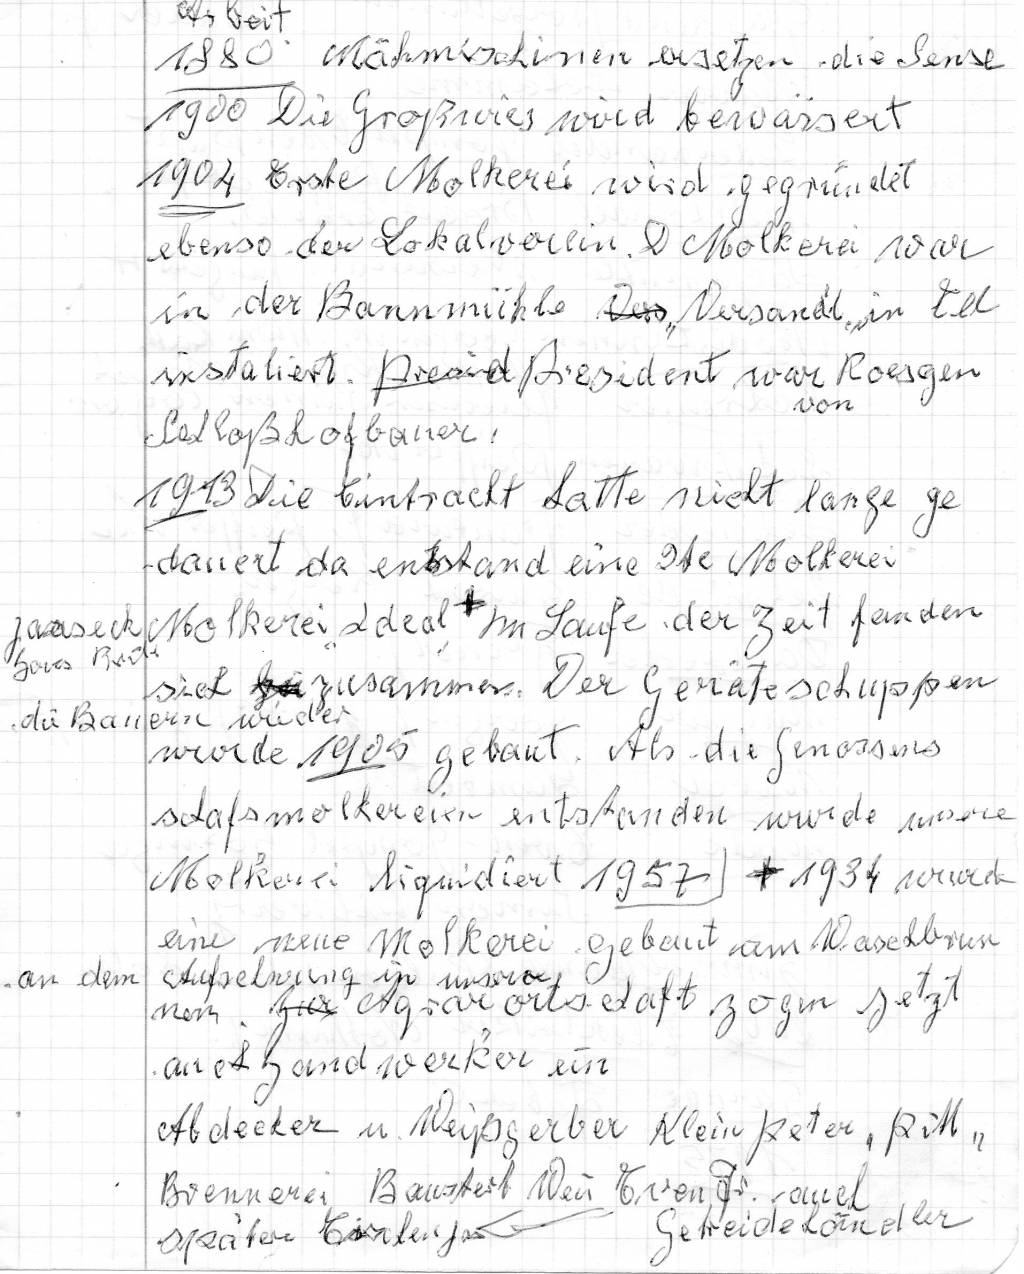 Arbeit
1880 Mähmischinen ersetzen die Sense
1900 Die Großwies wird bewässert
1904 Erste Molkerei wird gegründet
ebenso der Lokalverein. D Molkerei war
in der Bannmühle Des „Versandt„ in
instaliert. Presid President war Roesgen
von
Schloßhofbauer.
1913 Die Eintracht hatte nicht lange ge
dauert da entstand eine 2te Molkerei
Molkerei Ideal + Im Laufe der Zeit fanden
sich zusammen. Der Geräteschuppen
die Bauern wieder
wurde 1905 gebaut. Als die Genossens
schafsmolkereien entstanden wurde unsere
Molkerei liquidiert 1957 + 1934 wurde
eine neue Molkerei gebaut am Waschbrun
an dem Aufschwung in unsrer
nen. Agrarortschaft zogen jetzt
auch Handwerker ein
Abdecker u. Weißgerber Klein Peter „Pitt„
Brennerei Baustert auch
später Getreidehändler